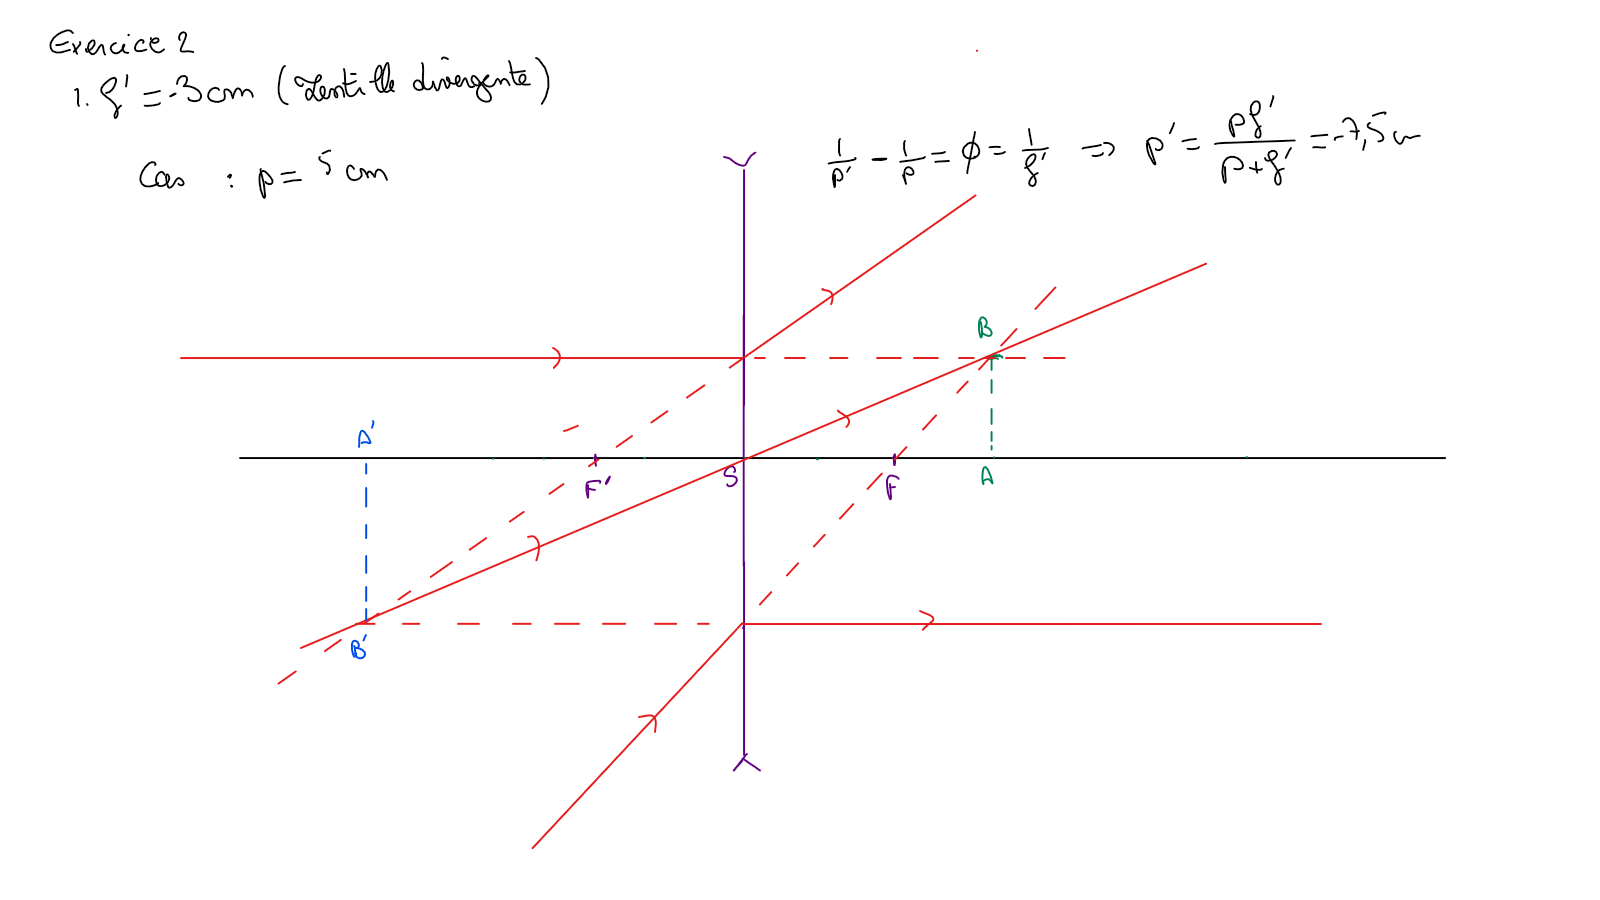 Exercice 2
1. f' = -3 cm (Lentille divergente)
Cas : p = 5 cm
1/p' - 1/p = ϕ = 1/f' ⇒ p' = pf'/(p+f') = -7,5 cm
B
A'
S
F'
F
A
B'